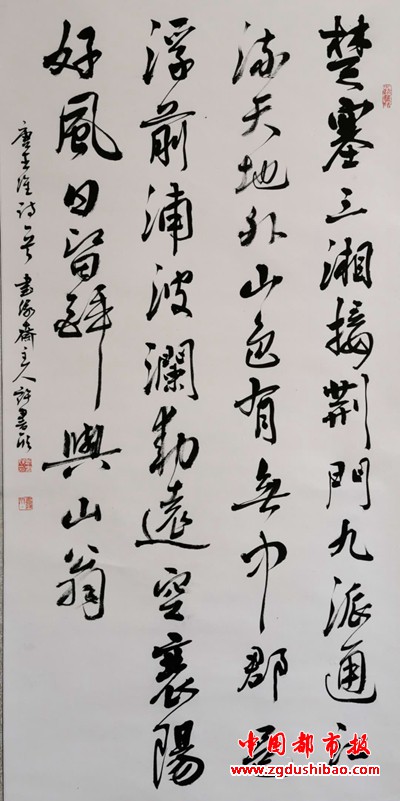 楚塞三湘接荆門九派通江
流天地外山色有無中郡邑
浮前浦波瀾動遠空襄陽
好風日留醉與山翁
唐王維詩一首 齋主人許書
中国都市报
www.zgdushibao.com